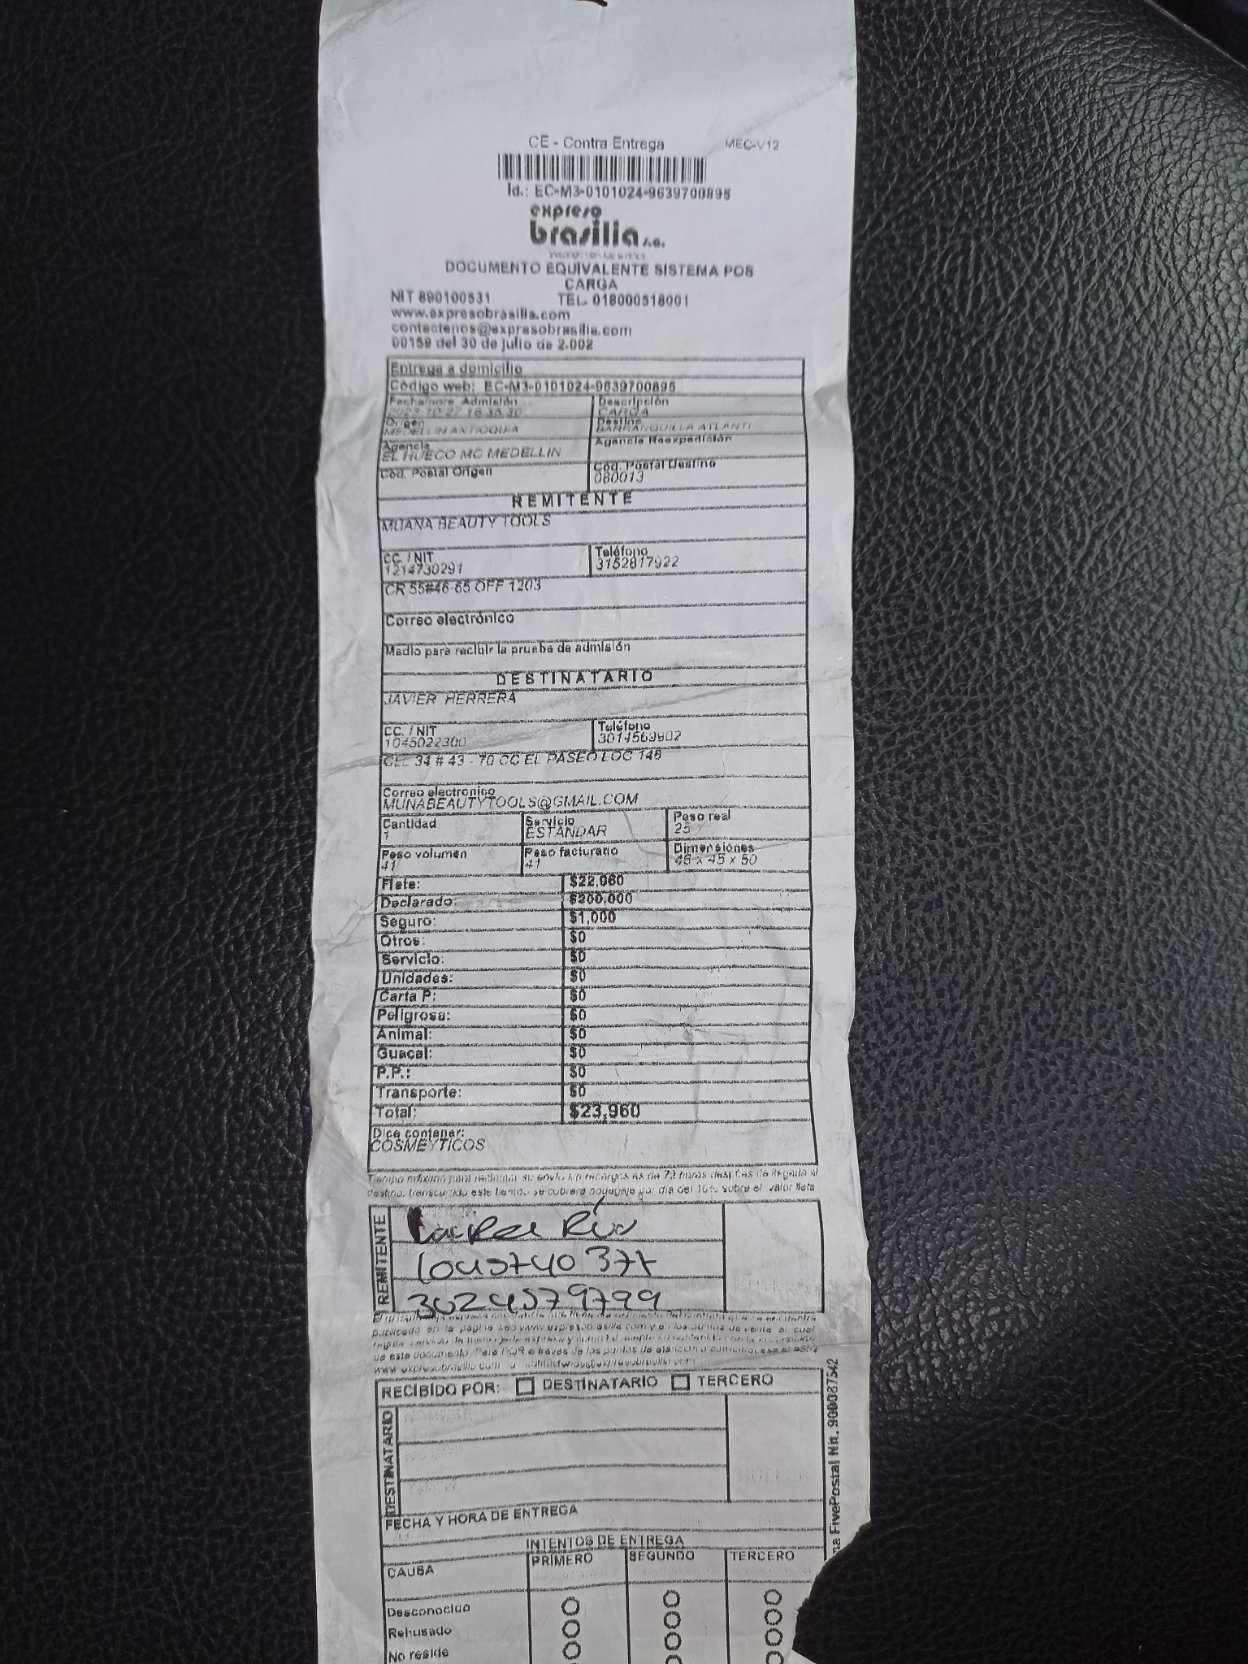 CE - Contra Entrega MEC-V12
Id.: EC-M3-0101024-9639700895
expreso
brasilia s.a.
DOCUMENTO EQUIVALENTE SISTEMA POS
CARGA
NIT 890100531 TEL. 018000518001
www.expresobrasilia.com
contactenos@expresobrasilia.com
00159 del 30 de julio de 2.002
Entrega a domicilio
Código web: EC-M3-0101024-9639700895
Fecha/hora. Admisión Descripción
CARGA
Origen Destino
MEDELLIN ANTIOQUIA BARRANQUILLA ATLANTI
Agencia Agencia Reexpedición
EL HUECO MC MEDELLIN
Cod. Postal Origen Cod. Postal Destino
080013
REMITENTE
MUANA BEAUTY TOOLS
CC. / NIT Teléfono
1214730291 3152817922
CR 55#46-65 OFF 1203
Correo electrónico
Medio para recibir la prueba de admisión
DESTINATARIO
JAVIER HERRERA
CC. / NIT Teléfono
1045022300 3014563902
CLL 34 # 43 - 70 CC EL PASEO LOC 148
Correo electronico
MUNABEAUTYTOOLS@GMAIL.COM
Cantidad Servicio Peso real
1 ESTANDAR 25
Peso volumen Peso facturado Dimensiones
41 41 46 x 45 x 50
Flete: $22,960
Declarado: $200,000
Seguro: $1,000
Otros: $0
Servicio: $0
Unidades: $0
Carta P: $0
Peligrosa: $0
Animal: $0
Guacal: $0
P.P.: $0
Transporte: $0
Total: $23,960
Dice contener:
COSMEYTICOS
Tiempo máximo para reclamar su envío sin recargos es de 72 horas después de llegada al
destino, transcurrido este tiempo se cobrará bodegaje por día del 10% sobre el valor flete
REMITENTE
3024579799
www.expresobrasilia.com o contactenos@expresobrasilia.com
RECIBIDO POR: DESTINATARIO TERCERO
DESTINATARIO
FECHA Y HORA DE ENTREGA
INTENTOS DE ENTREGA
CAUSA PRIMERO SEGUNDO TERCERO
Desconocido
Rehusado
No reside
FivePostal Nit. 900087542